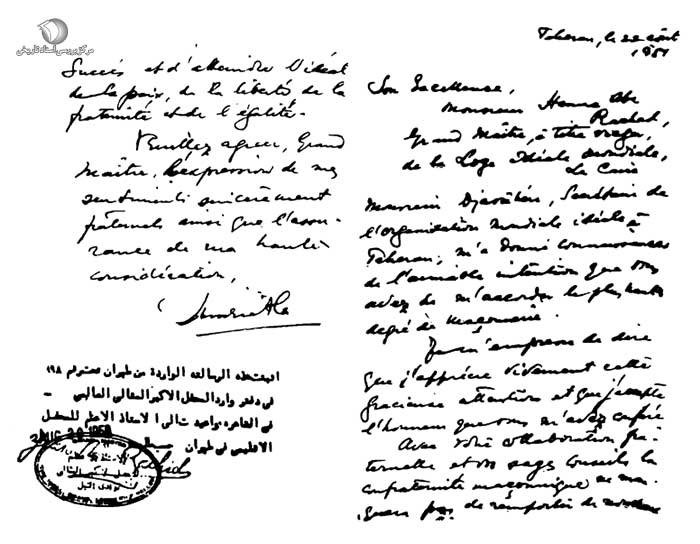 مرکز بررسی اسناد تاریخی
Teheran, le 22 août
1951
Son Excellence,
Monsieur Hanna Abi
Rached,
Grand Maître, à titre
de la Loge Idéale Mondiale,
Le Caire
Monsieur Djavahéri, de
l'organisation mondiale idéale à
Teheran, m'a donné connaissance
de l'aimable intention que vous
avez de m'accorder le plus haut
degré de maçonnerie.
Je m'empresse de dire
que j'apprécie vivement cette
gracieuse attention et que j'accepte
l'honneur que vous m'avez conféré
Avec votre collaboration fra-
ternelle et vos sages conseils la
confraternité maçonnique ne man-
quera pas de remporter de
Succès et d'atteindre l'idéal
de la paix, de la liberté, de la
fraternité et de l'égalité.
Veuillez agréer, Grand
Maître, l'expression de mes
sentiments sincèrement
fraternels ainsi que l'assu-
rance de ma haute
considération,
الرساله الواردة من طهران تحت رقم ١٩٨
في دفتر وارد المحفل الاكبر المثالي العالمي -
في القاهره واعيدت الى الاستاذ الاعظم للمحفل
الاقليمي في طهران